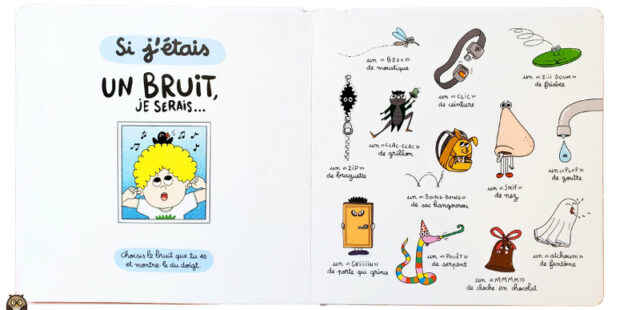 Si j'étais
UN BRUIT,
JE SERAIS...
choisis le bruit que tu es
et montre-le du doigt.
un « BZZZ »
de moustique
un « CLIC »
de ceinture
un « ZIII BOUM »
de frisbee
un « ZIP »
de braguette
un « CLAC-CLAC »
de grillon
un « BOING-BOING »
de sac kangourou
un « SNIF »
de nez
un « PLOF »
de goutte
un « GRIIIIN »
de porte qui grince
un « POUËT »
de serpent
un « MMMM »
de cloche en chocolat
un « atchoum »
de fantôme